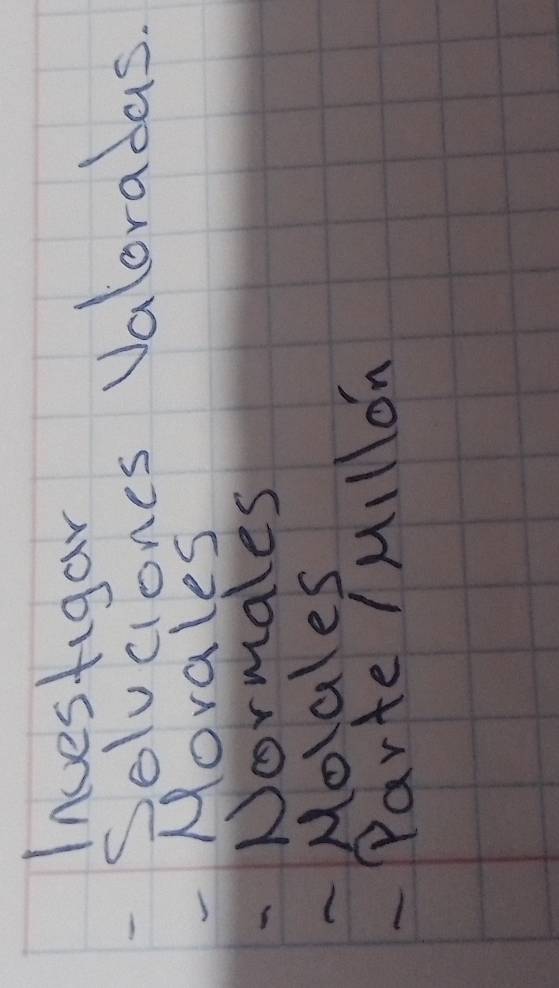 Investigar
- Soluciones Valoradas.
- Morales
- Normales
- Molales
- Parte/Millón